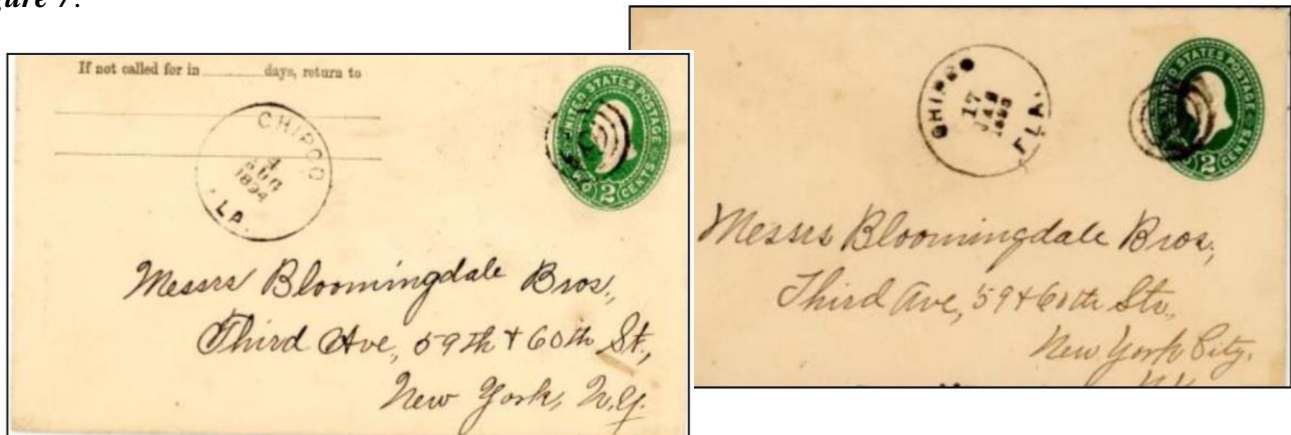 gure 7.
If not called for in ........ days, return to
CHIPCO
4
AUG
1894
LA.
UNITED STATES POSTAGE
TWO 2 CENTS
Messrs Bloomingdale Bros,
Third Ave, 59th & 60th St.,
New York, N.Y.
17
1893
FLA.
UNITED STATES POSTAGE
2 CENTS
Messrs Bloomingdale Bros,
Third Ave, 59 & 60th Sts,
New York City,